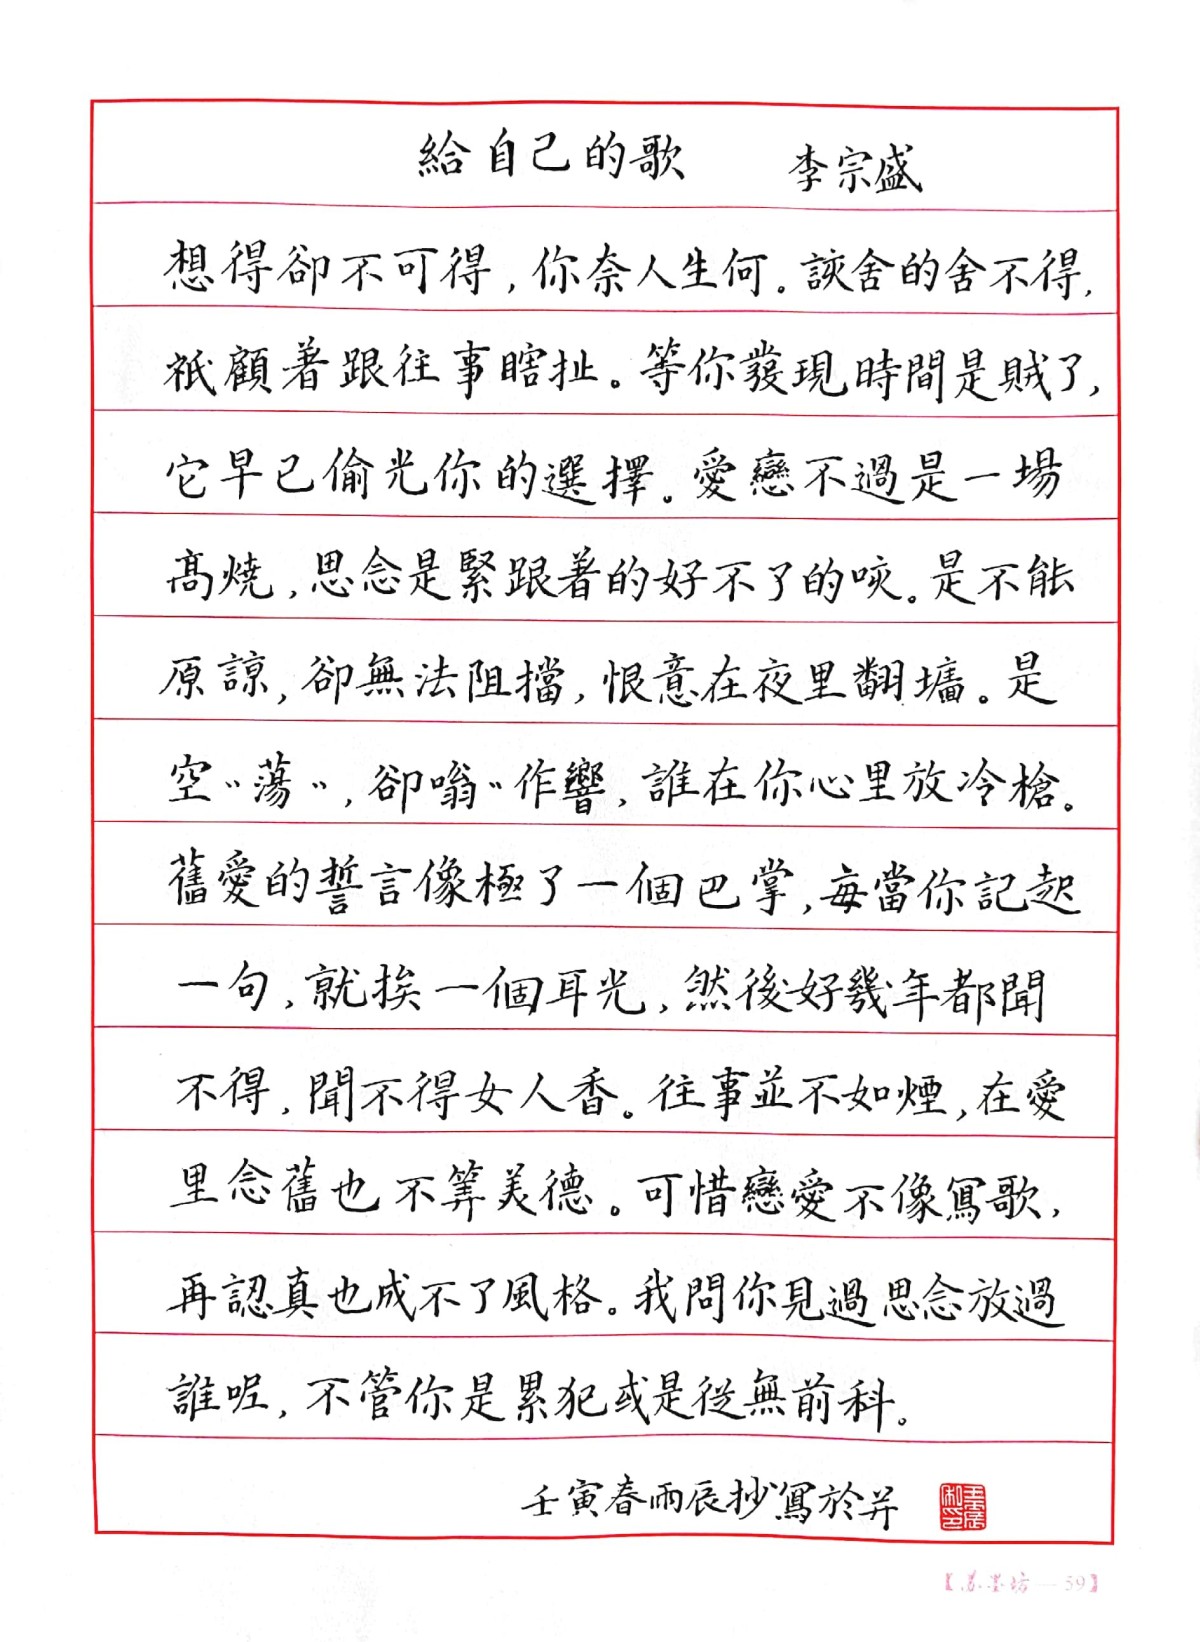 給自己的歌 李宗盛
想得卻不可得，你奈人生何。該舍的舍不得，
祇顧著跟往事瞎扯。等你發現時間是賊了，
它早已偷光你的選擇。愛戀不過是一場
高燒，思念是緊跟著的好不了的咳。是不能
原諒，卻無法阻擋，恨意在夜里翻墻。是
空〃蕩〃，卻嗡〃作響，誰在你心里放冷槍。
舊愛的誓言像極了一個巴掌，每當你記起
一句，就挨一個耳光，然後好幾年都聞
不得，聞不得女人香。往事並不如煙，在愛
里念舊也不算美德。可惜戀愛不像寫歌，
再認真也成不了風格。我問你見過思念放過
誰呢，不管你是累犯或是從無前科。
壬寅春雨辰抄寫於并
【苏墨坊—59】